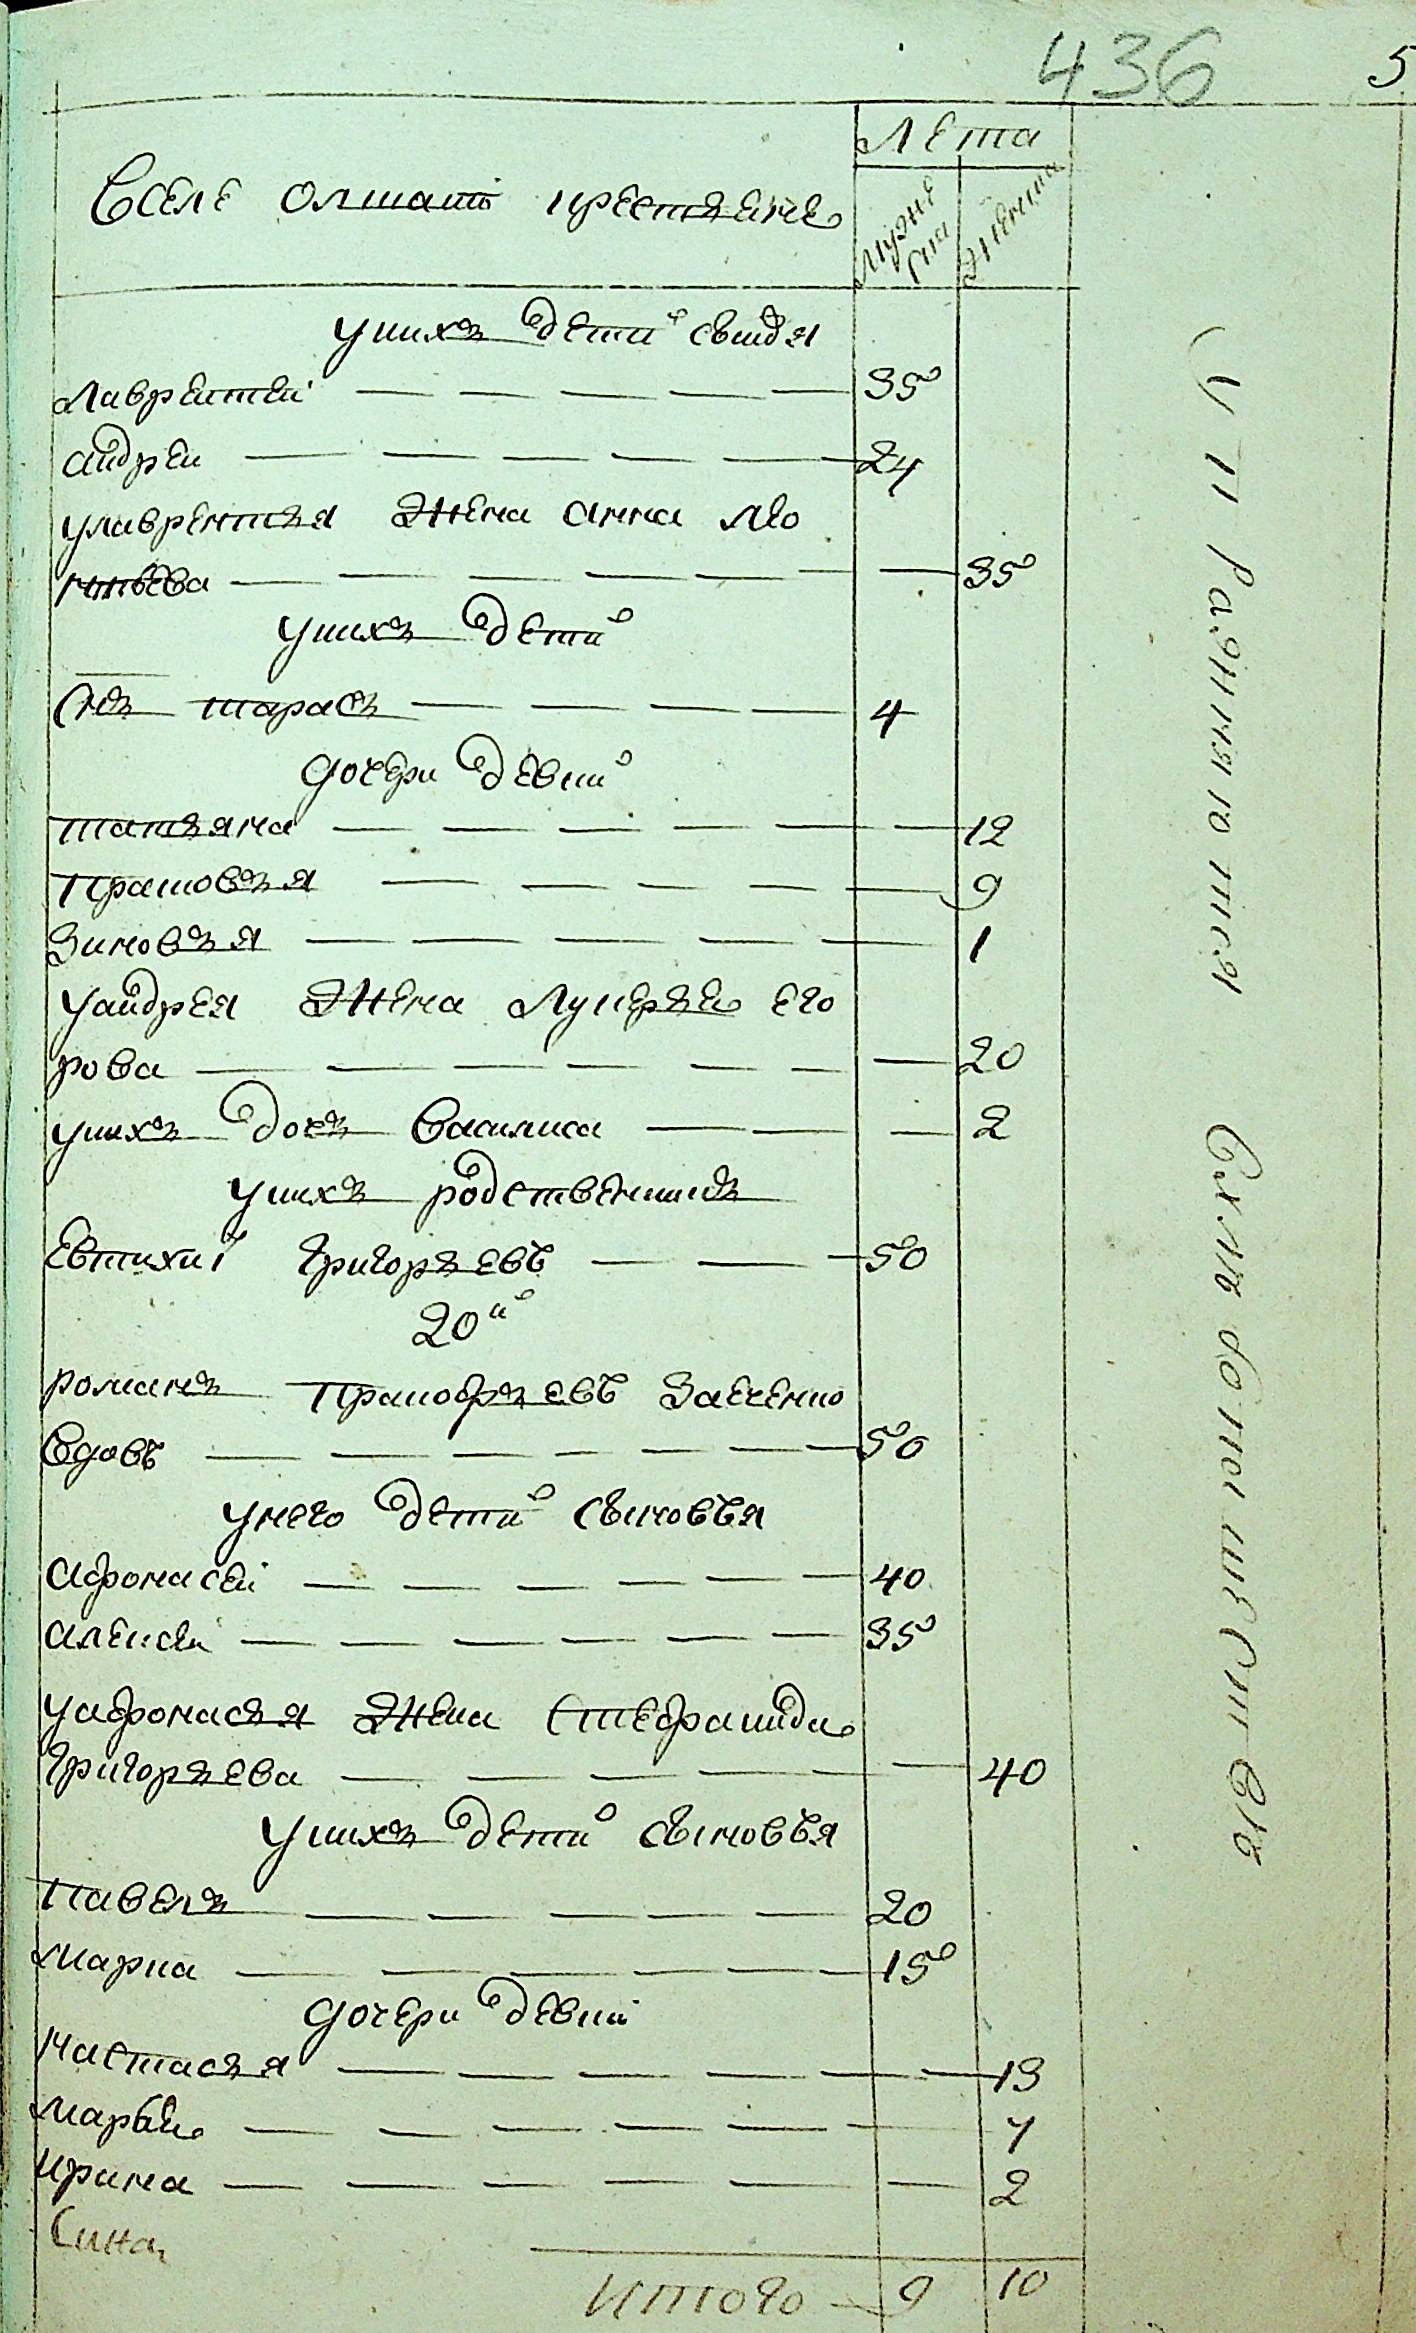 436 5
Лета
Вселе олшани крестьяне
мужеска
женска
унихъ дети сыновя
лаврентеи 35
андреи 24
улаврентья жена анна лео
нтьева 35
унихъ дети
снъ тарасъ 4
дочери девки
татьяна 12
Прасковья 9
Зиновья 1
уандрея жена Лукерья его
рова 20
унихъ дочь Василиса 2
унихъ родственникъ
Евтихиї григорьевъ 50
20й
романъ Пракофьевъ Заеченко
вдовъ 50
унего дети сыновья
афонасеи 40
алексеи 35
уафонасья жена Стефанида
григорьева 40
унихъ дети сыновья
павелъ 20
марка 15
дочери девки
настасья 13
марья 7
ирина 2
Итого 9 10